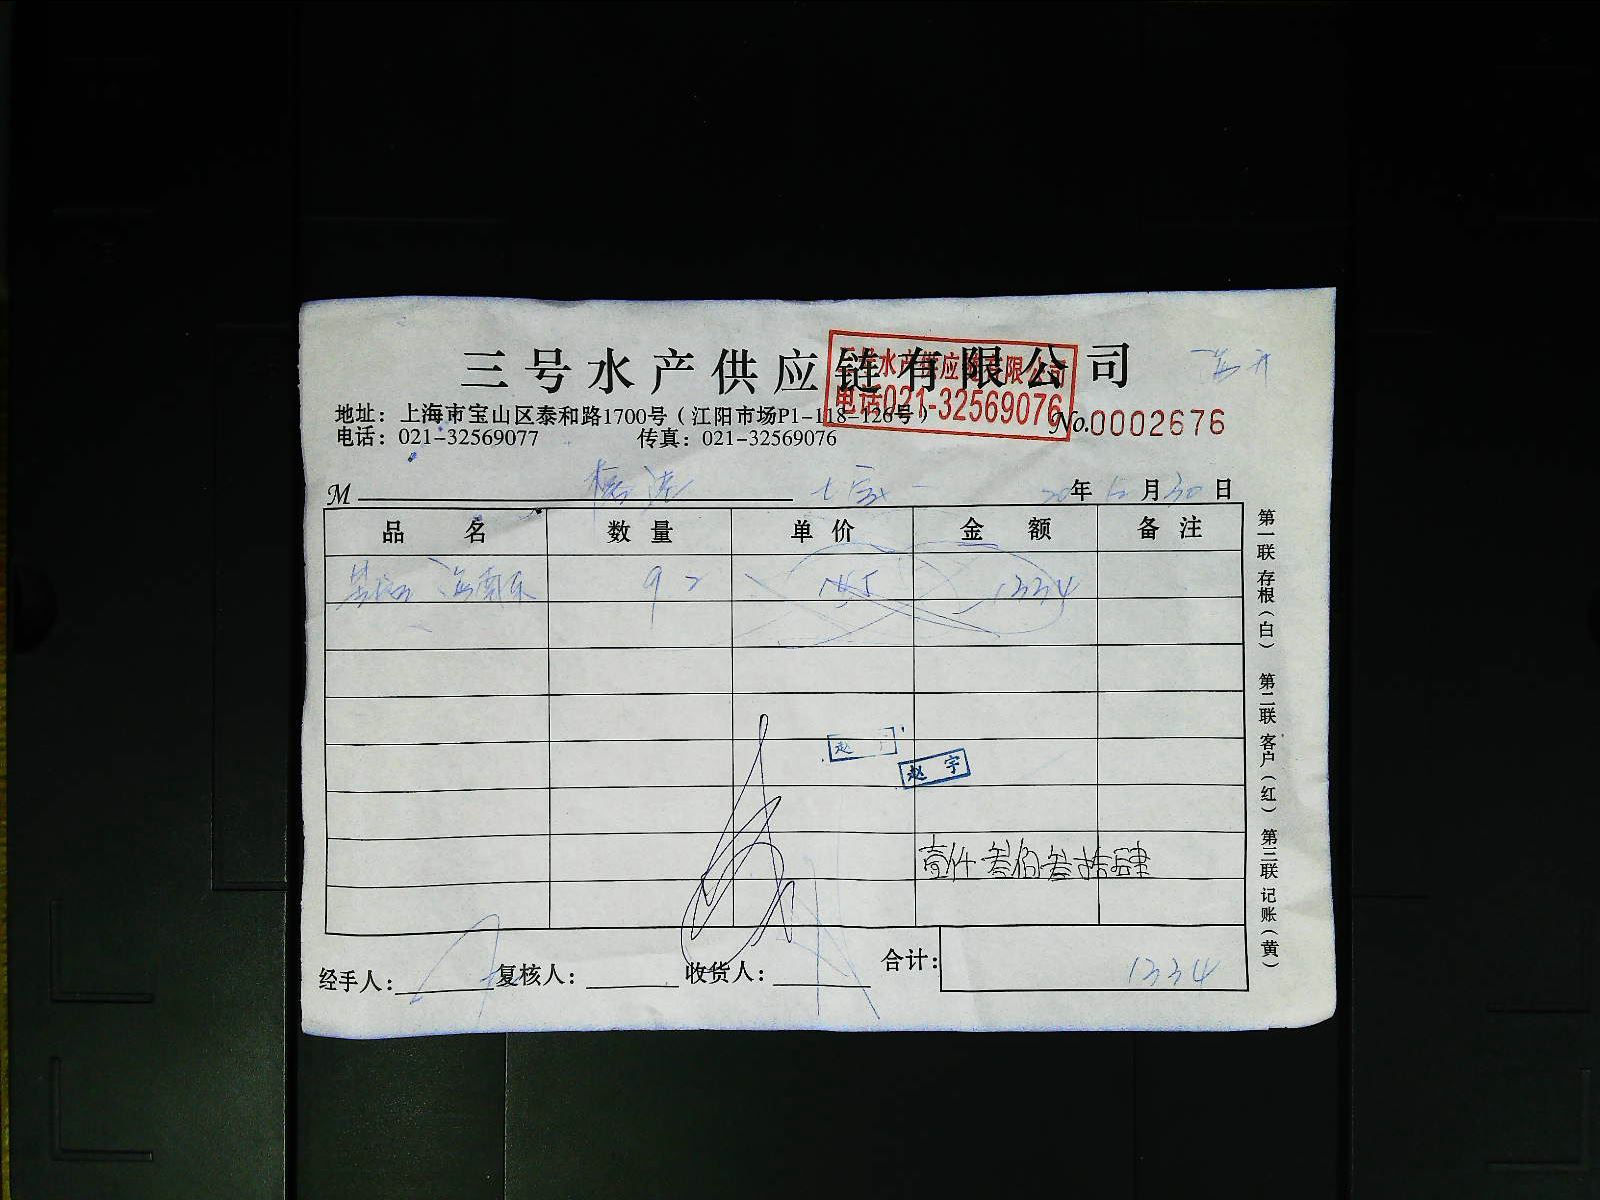 三号水产供应链有限公司
三号水产供应链有限公司
电话021-32569076
地址：上海市宝山区泰和路1700号（江阳市场P1-118-126号）
No.0002676
电话：021-32569077 传真：021-32569076
M 20年12月30日
品名 数量 单价 金额 备注
海南 92 145 1334
赵
赵宇
壹仟叁佰叁拾肆
经手人： 复核人： 收货人： 合计： 1334
第一联存根（白） 第二联客户（红） 第三联记账（黄）